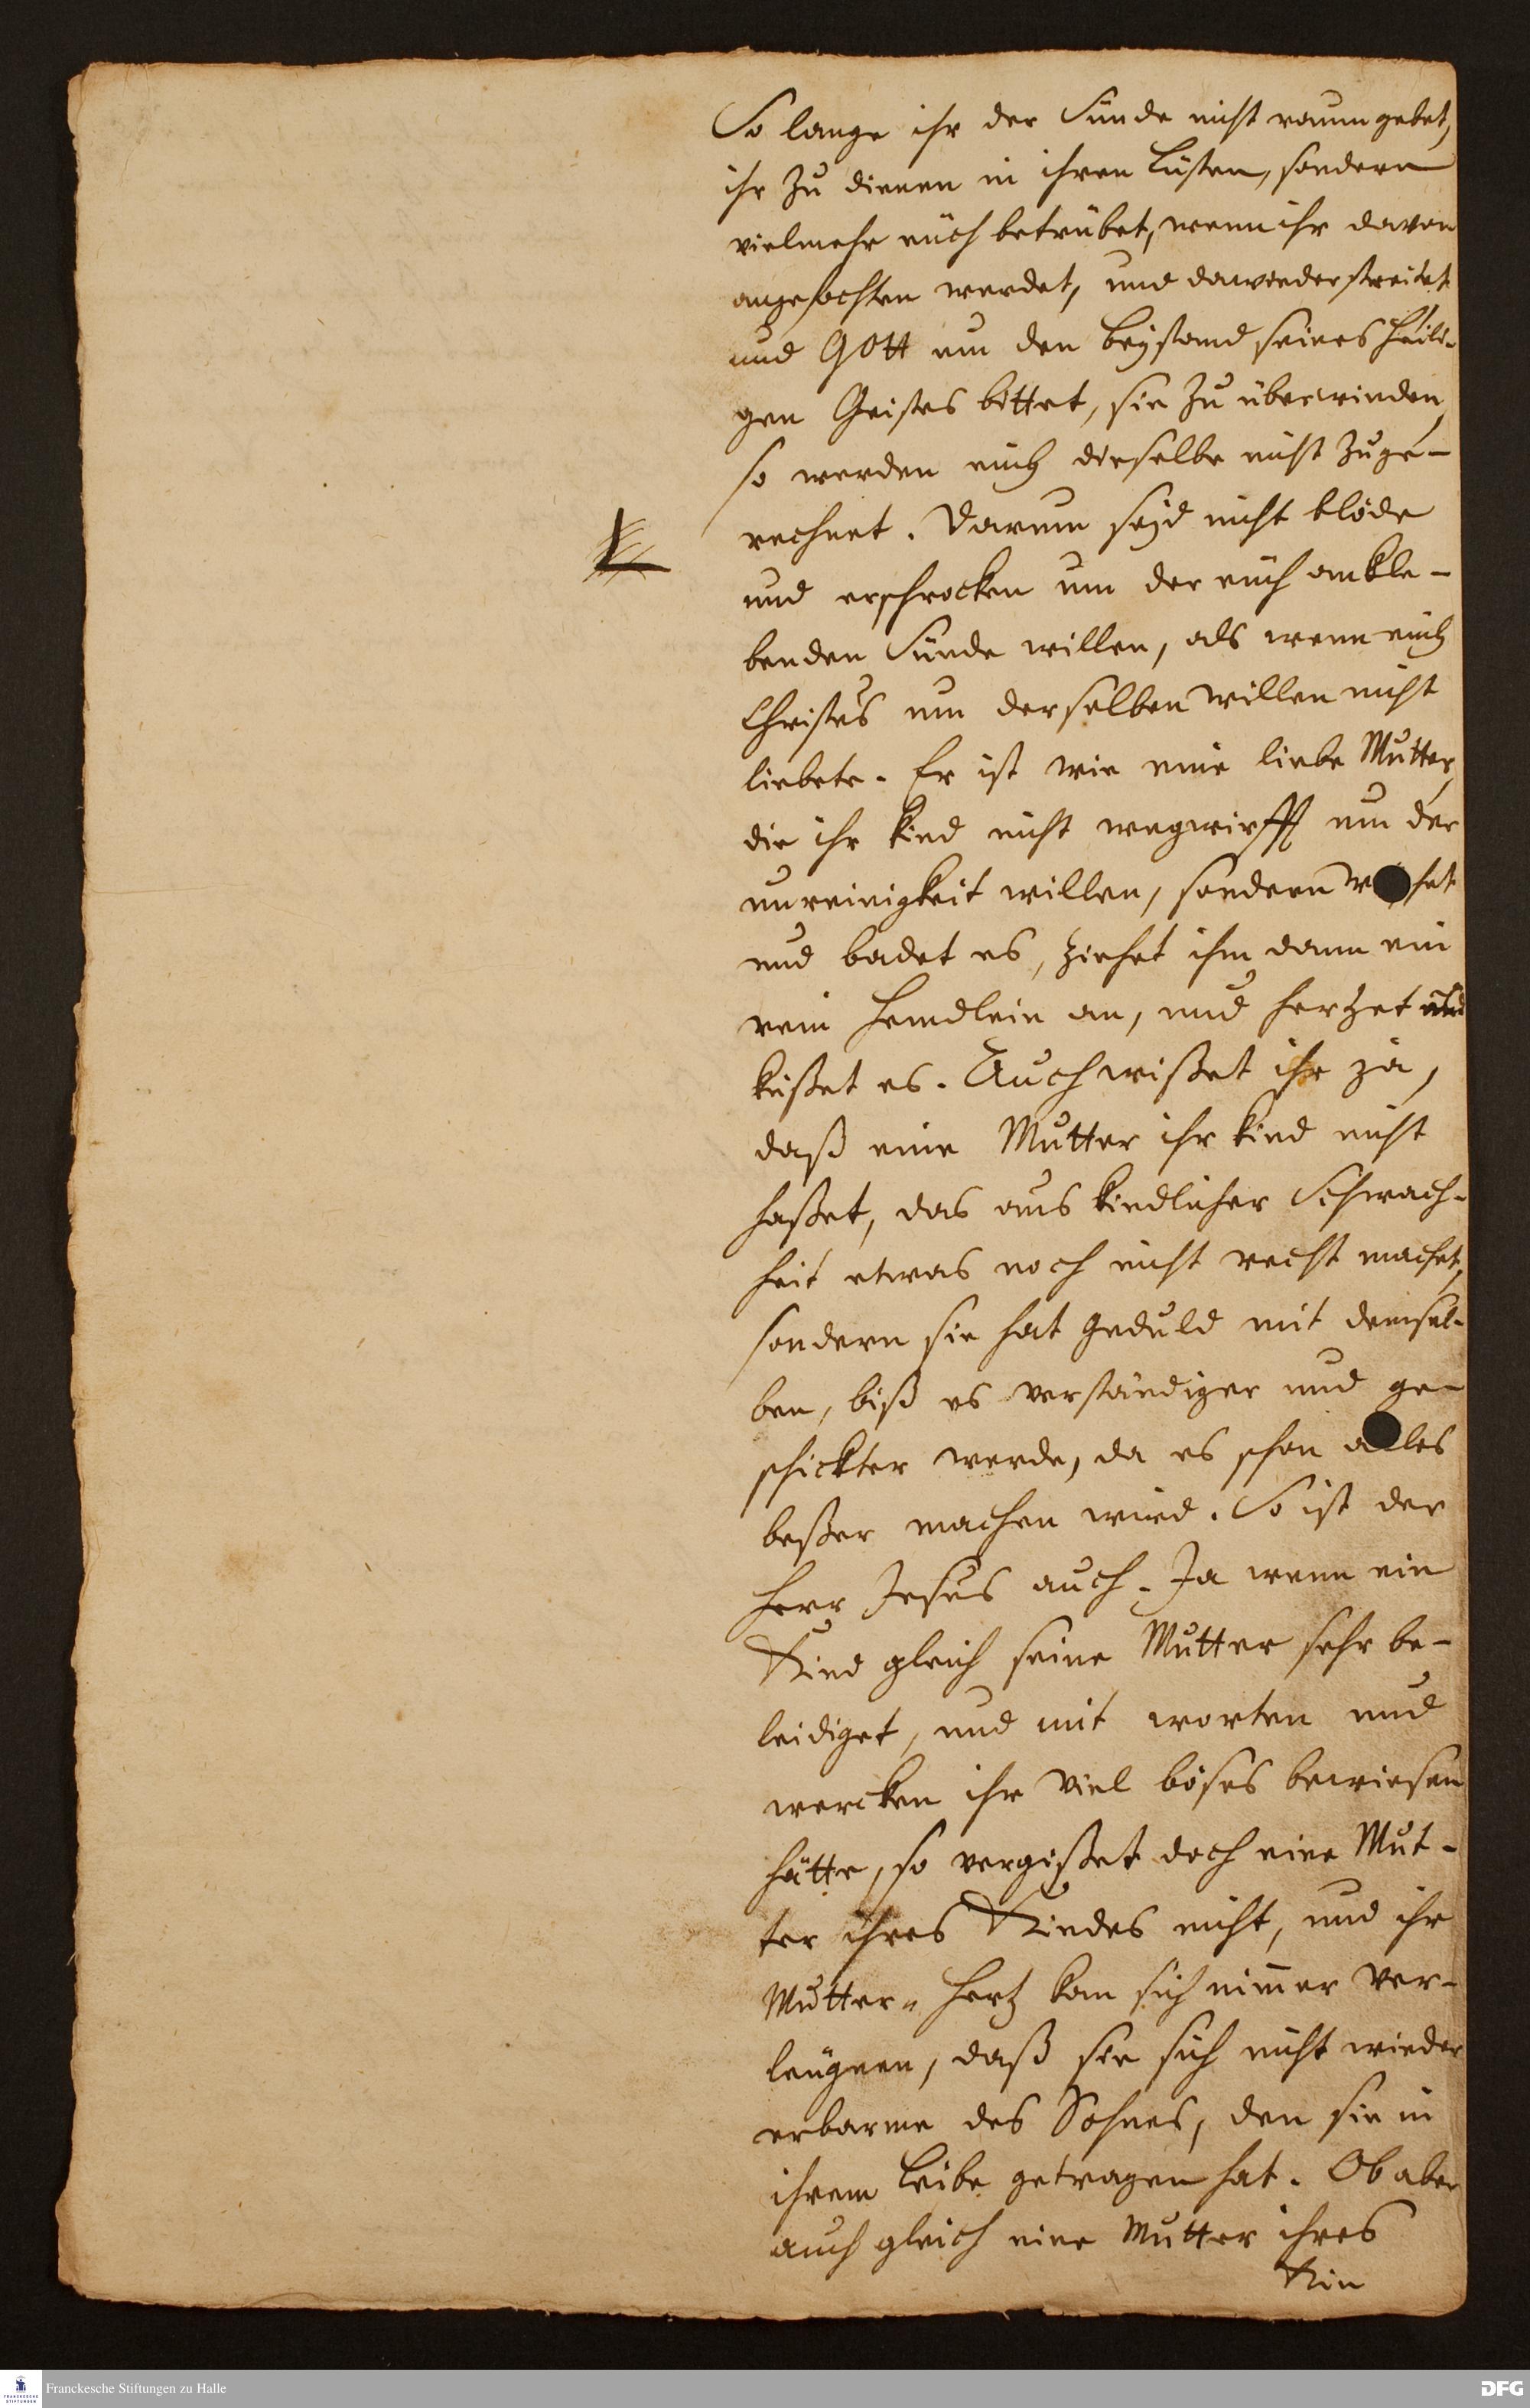 So lange ihr der Sünde nicht raum gebet,
ihr zu dienen in ihren Lüsten, sondern
vielmehr euch betrübet, wenn ihr davon
angefochten werdet, und dawieder streitet
und GOtt um den Beystand seines heili-
gen Geistes bittet, sie zu überwinden,
so werden euch dieselbe nicht zuge-
rechnet. Darum seyd nicht blöde
und erschrocken um der euch ankle-
benden Sünde willen, als wenn euch
Christus um derselben willen nicht
liebete. Er ist wie eine liebe Mutter,
die ihr Kind nicht wegwirfft um der
unreinigkeit willen, sondern
und badet es, ziehet ihm dann ein
rein Hemdlein an, und hertzet und
küßet es. Auch wißet ihr ja,
daß eine Mutter ihr Kind nicht
haßet, das aus kindlicher Schwach-
heit etwas noch nicht recht machet,
sondern sie hat Geduld mit demsel-
ben, biß es verständiger und ge-
schickter werde, da es schon alles
beßer machen wird. So ist der
Herr Jesus auch. Ja wenn ein
Kind gleich seine Mutter sehr be-
leidiget, und mit worten und
wercken ihr viel böses bewiesen
hätte, so vergißet doch eine Mut-
ter ihres Kindes nicht, und ihr
Mutter-Hertz kan sich nimer ver-
leugnen, daß sie sich nicht wieder
erbarme des Sohnes, den sie in
ihrem Leibe getragen hat. Ob aber
auch gleich eine Mutter ihres
Kin
Franckesche Stiftungen zu Halle
FRANCKESCHE STIFTUNGEN
DFG